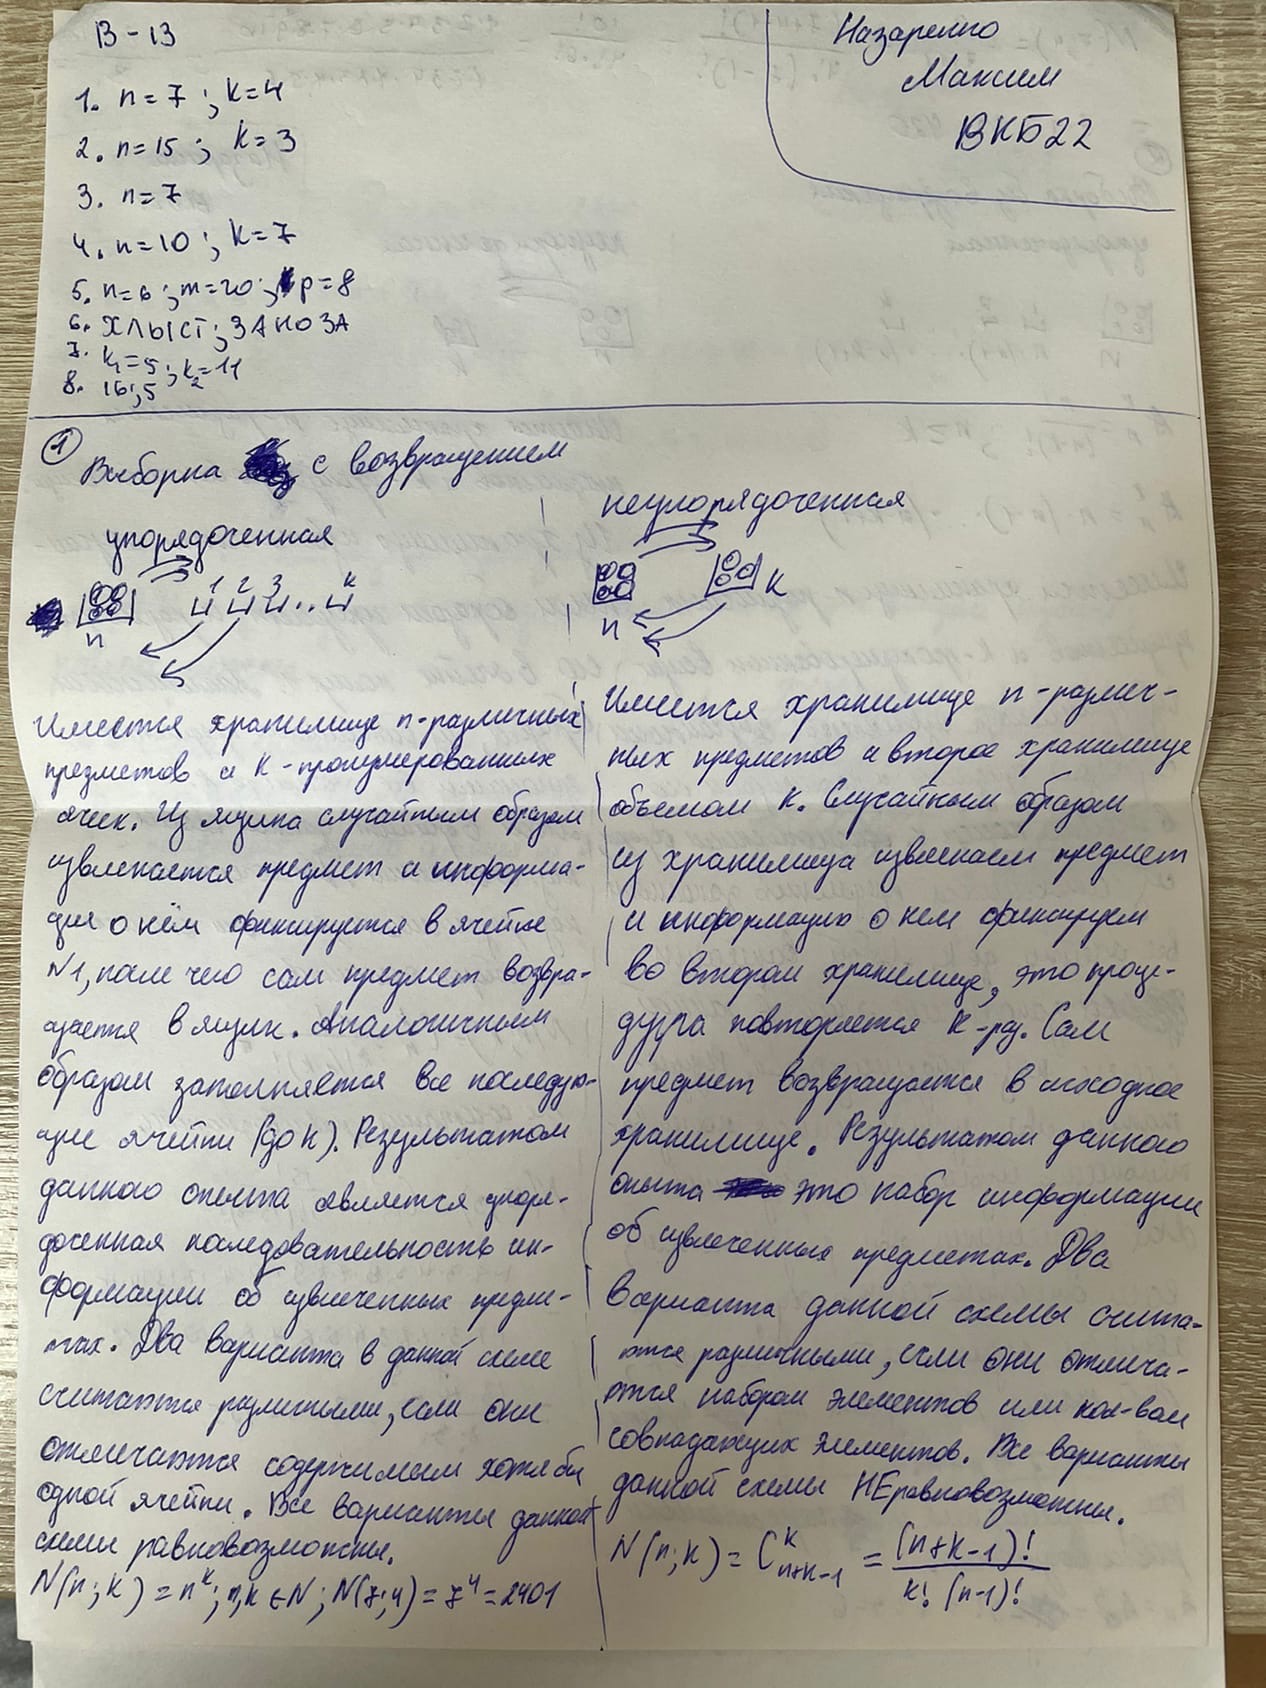 В-13
Назаренко
Максим
ВКБ22
1. n=7 ; k=4
2. n=15 ; k=3
3. n=7
4. n=10 ; k=7
5. n=6 ; m=20 ; p=8
6. ХЛЫСТ ; ЗАНОЗА
7. k₁=5 ; k₂=11
8. 16 ; 5
1
Выборка с возвращением
упорядоченная
1 2 3 ... k
n
Имеется хранилище n-различных
предметов и k-пронумерованных
ячеек. Из ящика случайным образом
извлекается предмет и информа-
ция о нём фиксируется в ячейке
N1, после чего сам предмет возвра-
щается в ящик. Аналогичным
образом заполняется все последую-
щие ячейки (до k). Результатом
данного опыта является упоря-
доченная последовательность ин-
формации об извлеченных предме-
тах. Два варианта в данной схеме
считаются различными, если они
отличаются содержимым хотя бы
одной ячейки. Все варианты данной
схемы равновозможны.
N(n;k) = nᵏ ; n,k ∈ N ; N(7;4) = 7⁴ = 2401
неупорядоченная
n
k
Имеется хранилище n-различ-
ных предметов и второе хранилище
объемом k. Случайным образом
из хранилища извлекаем предмет
и информацию о нем фиксируем
во втором хранилище, это проце-
дура повторяется k-раз. Сам
предмет возвращается в исходное
хранилище. Результатом данного
опыта это набор информации
об извлеченных предметах. Два
варианта данной схемы счита-
ются различными, если они отлича-
ются набором элементов или кол-вом
совпадающих элементов. Все варианты
данной схемы НЕравновозможны.
N(n;k) = Cᵏₙ₊ₖ₋₁ = (n+k-1)! / k! (n-1)!